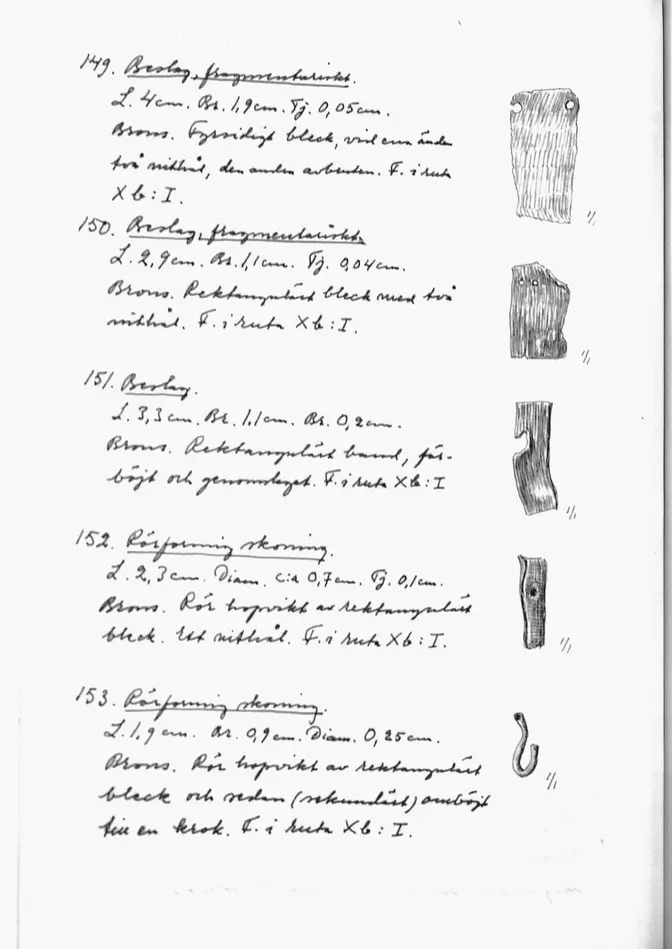 149. Beslag, fragmentariskt.
L. 4cm. Br. 1,9cm. Tj. 0,05cm.
Brons. Fyrsidigt bleck, vid ena änden
två nithål, den andra avbruten. F. i ruta
Xb: I.
1/1
150. Beslag, fragmentariskt.
L. 2,9cm. Br. 1,1cm. Tj. 0,04cm.
Brons. Rektangulärt bleck med två
nithål. F. i ruta Xb: I.
1/1
151. Beslag.
L. 3,3cm. Br. 1,1cm. Br. 0,2cm.
Brons. Rektangulärt band, för-
böjt och genomslaget. F. i ruta Xb: I
1/1
152. Rörformig skoning.
L. 2,3cm. Diam. c:a 0,7cm. Tj. 0,1cm.
Brons. Rör hopvikt av rektangulärt
bleck. Ett nithål. F. i ruta Xb: I.
1/1
153. Rörformig skoning.
L. 1,9cm. Br. 0,9cm. Diam. 0,25cm.
Brons. Rör hopvikt av rektangulärt
bleck och sedan (sekundärt) omböjt
till en krok. F. i ruta Xb: I.
1/1